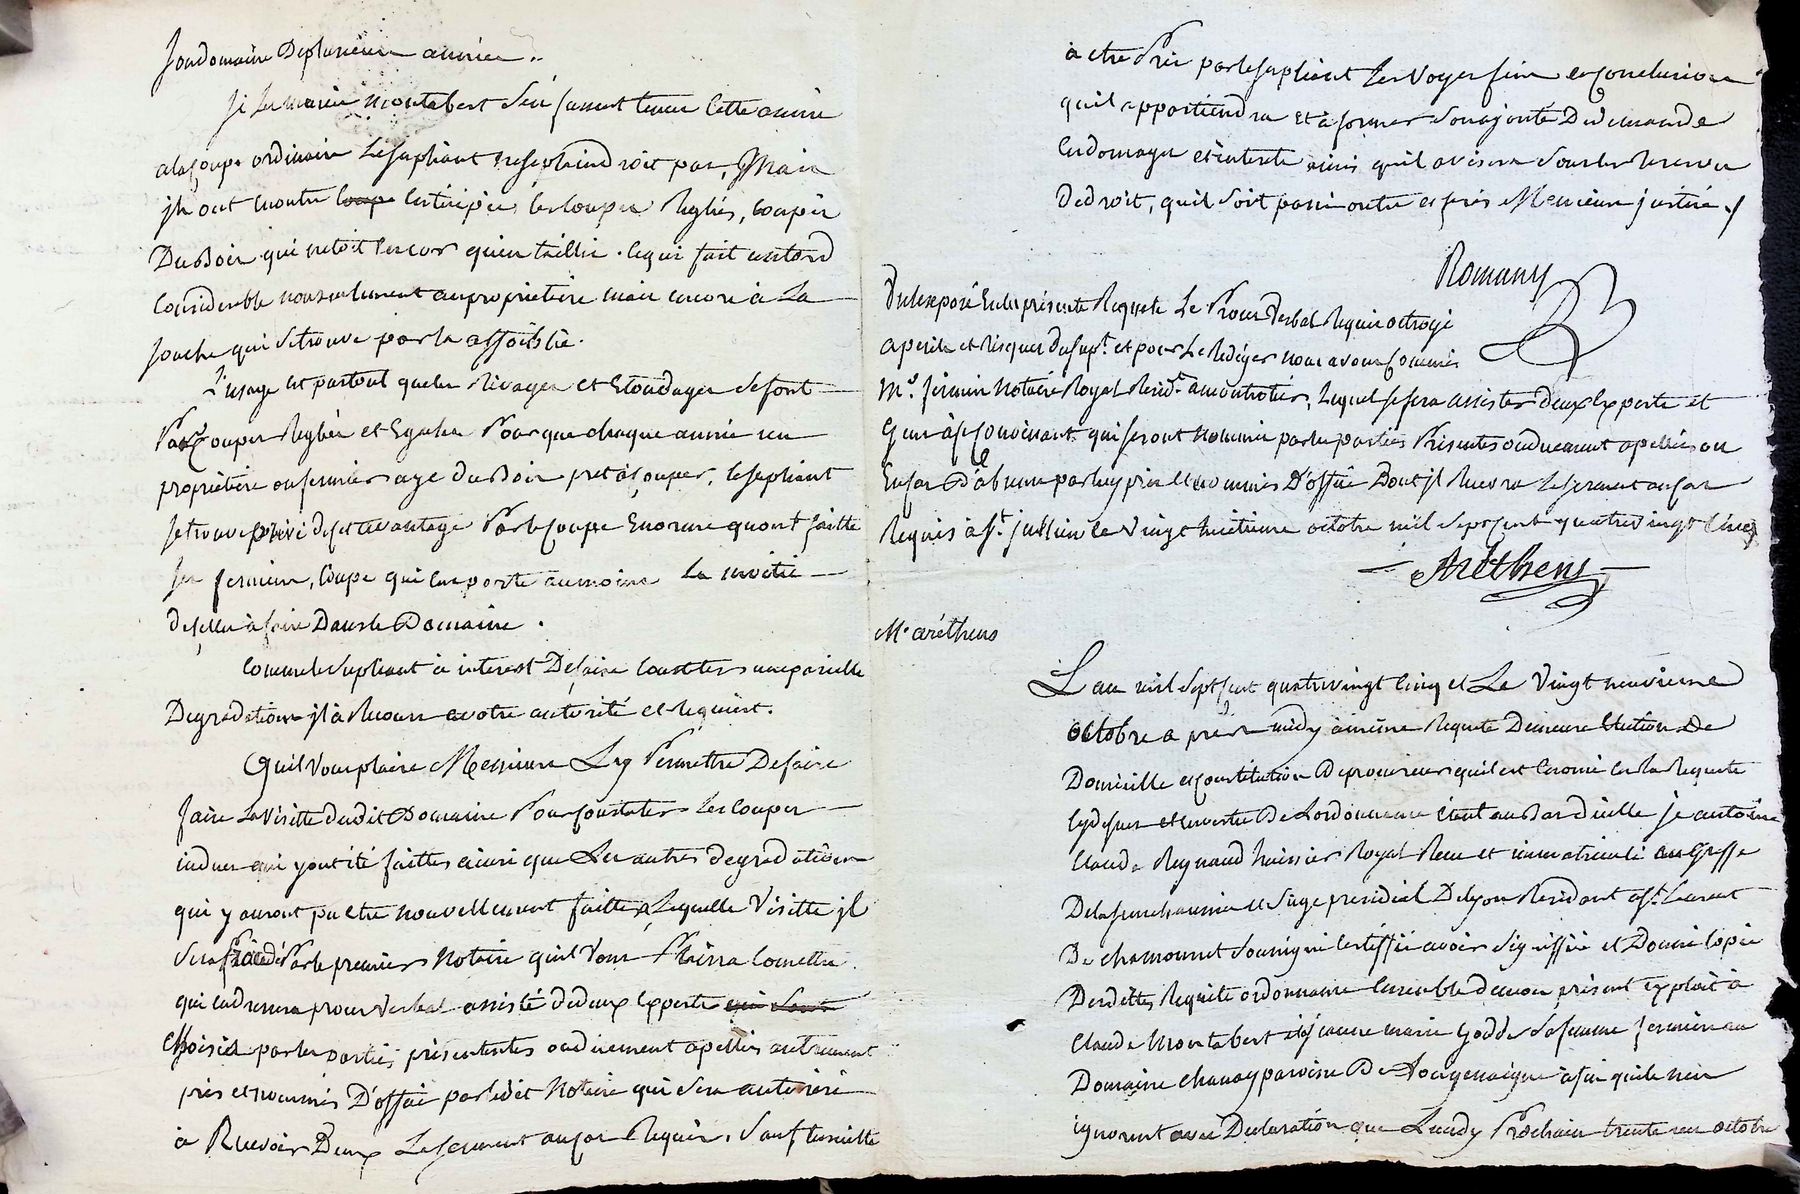 son domaine de plusieurs années.
Si les mariés Montabert s'en fussent tenus cette année
a la coupe ordinaire le supliant ne se plaindroit pas, mais
ils ont encontre coupe les coupes reglées, coupés
du Bois qui netoit encor quen taillis. ce qui fait un tord
considerable non seulement au proprietaire mais encore à la
souche qui se trouve par la affoiblie.
L'usage est partout que les Rivages et Etondages se font
Par Coupes Reglées et Egales Pour que chaque année un
proprietere ou fermier aye du Bois pret à couper, le supliant
se trouve privé de cet avantage Par la coupe Enorme quont faitte
ses fermiers, coupe qui emporte au moins la moitié
de celles à faire Dans le Domaine.
Comme le supliant à interest De faire constater une pareille
Degradation il à Recours a votre autorité et requiert.
Quil vous plaise Messieurs luy Permettre De faire
faire la Visitte dudit Domaine Pour constater les coupes
indues qui y ont été faittes ainsi que les autres degradations
qui y auront pu etre nouvellement faittes, laquelle Visitte il
sera procédé Par le premier Notaire quil vous Plaira comettre
qui en dressera procès verbal assisté de deux Experts qui seront
choisies par les parties, présentes ou duement apellées autrement
pris et nommés D'office par ledit Notaire qui sera autorisé
à Recevoir D'eux le serment au cas Requis, sauf ensuitte
à etre Pris par le supliant les voyes fins et conclusions
quil appartiendra et à former son ajouté De demande
en domages et interets ainsi quil avisera sous les reserves
De droit, quil soit passé outre et ferés Messieurs justice.
Romany
Vu l'exposé En la présente Requete le Procès Verbal Requis octroyé
a perils et risques du supt. et pour le Rediger nous avons commis
Me. fermin Notaire Royal Residt. a montrotier, lequel se fera assister deux Experts et
Gens à ce Connoissant qui seront nommés par les parties Présentes ou duement apellées ou
En cas D'absence par luy pris et nommés D'office Dont il Recevra le serment au cas
Requis à St. jullien ce vingt huitieme octobre mil sept cent quatre vingt cinq
Aréthens
Me aréthens
L'an mil sept cent quatre vingt cinq et le Vingt neuvieme
octobre apres midy à meme Requete Demeure Election De
Domicille et constitution De procureur quil est enoncé en la Requete
cy dessus et en vertu De L'ordonnance étant au Bas d'icelle je antoine
Claude Reynaud huissier Royal Reçu et immatriculé au Greffe
De la senechaussée et siege presidial De lyon Residant a St. Laurent
De chamousset soussigné certiffie avoir signiffié et Donné copie
Desdittes Requete ordonnance ensemble de mon présent exploit à
Claude Montabert et à jeanne marie Godde sa femme fermiers au
Domaine chanay paroisse De afin quils n'en
ignorent avec Declaration que Lundy Prochain trente un octobre